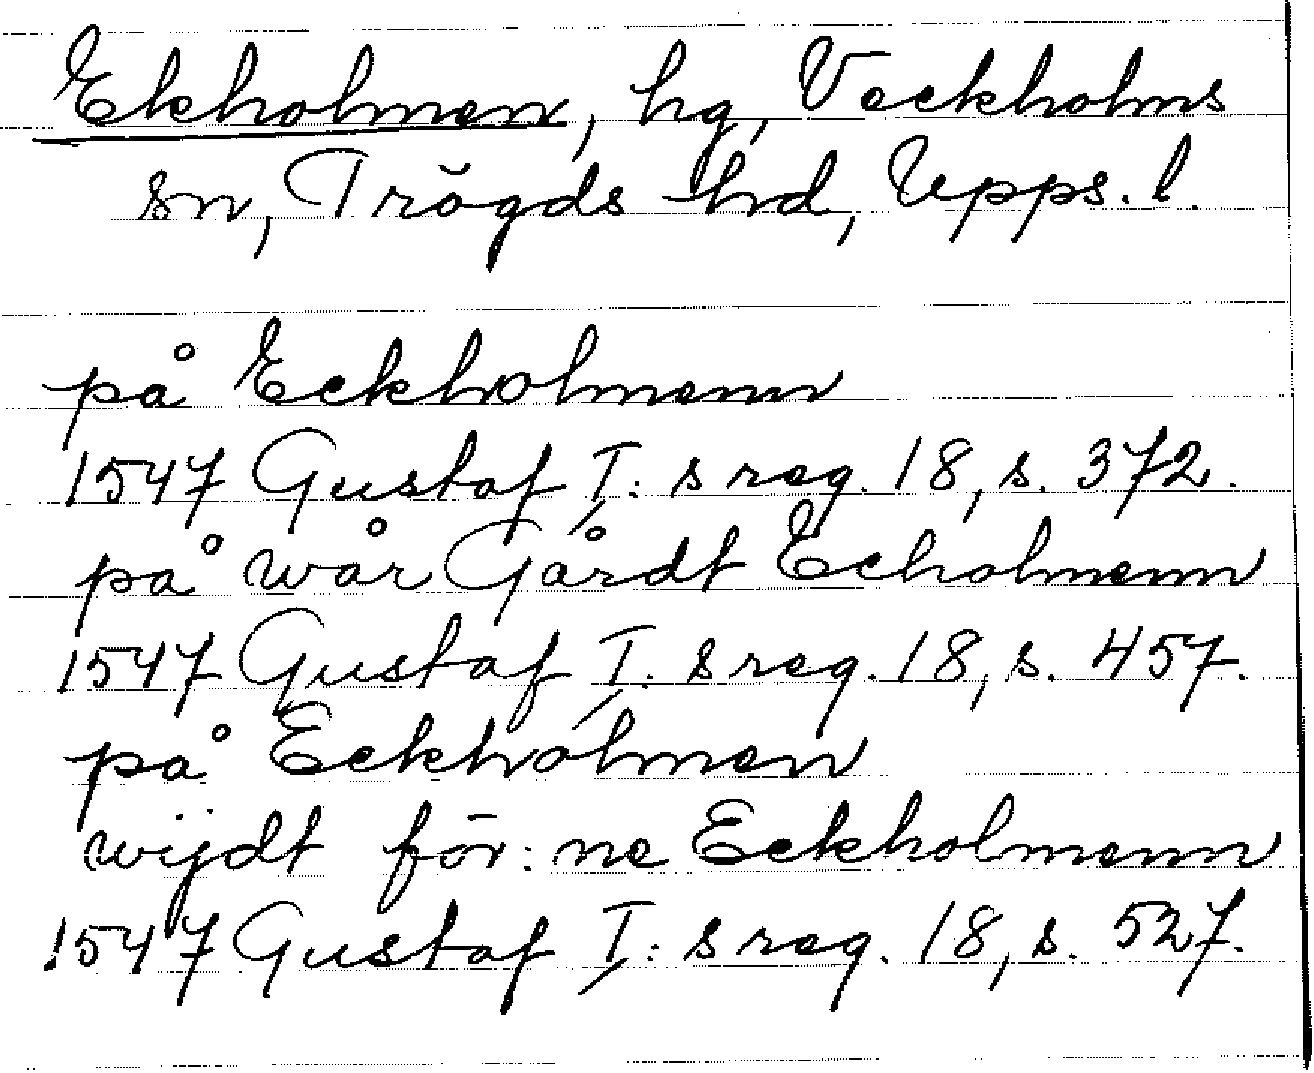 Ekholmen, hg, Veckholms
sn, Trögds hd, Upps. l.
på Eckholmenn
1547 Gustaf I: s reg. 18, s. 372.
på wår Gårdt Echolmenn
1547 Gustaf I: s reg. 18, s. 457.
på Eckholmen
wijdt för: ne Eckholmenn
1547 Gustaf I: s reg. 18, s. 527.